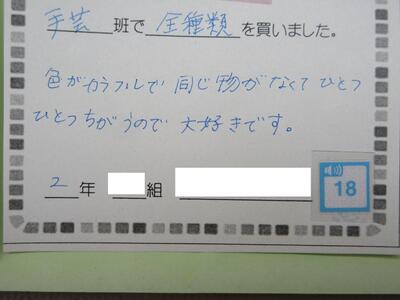 手芸班で全種類を買いました。
色がカラフルで同じ物がなくてひとつ
ひとつちがうので大好きです。
2年 組
18